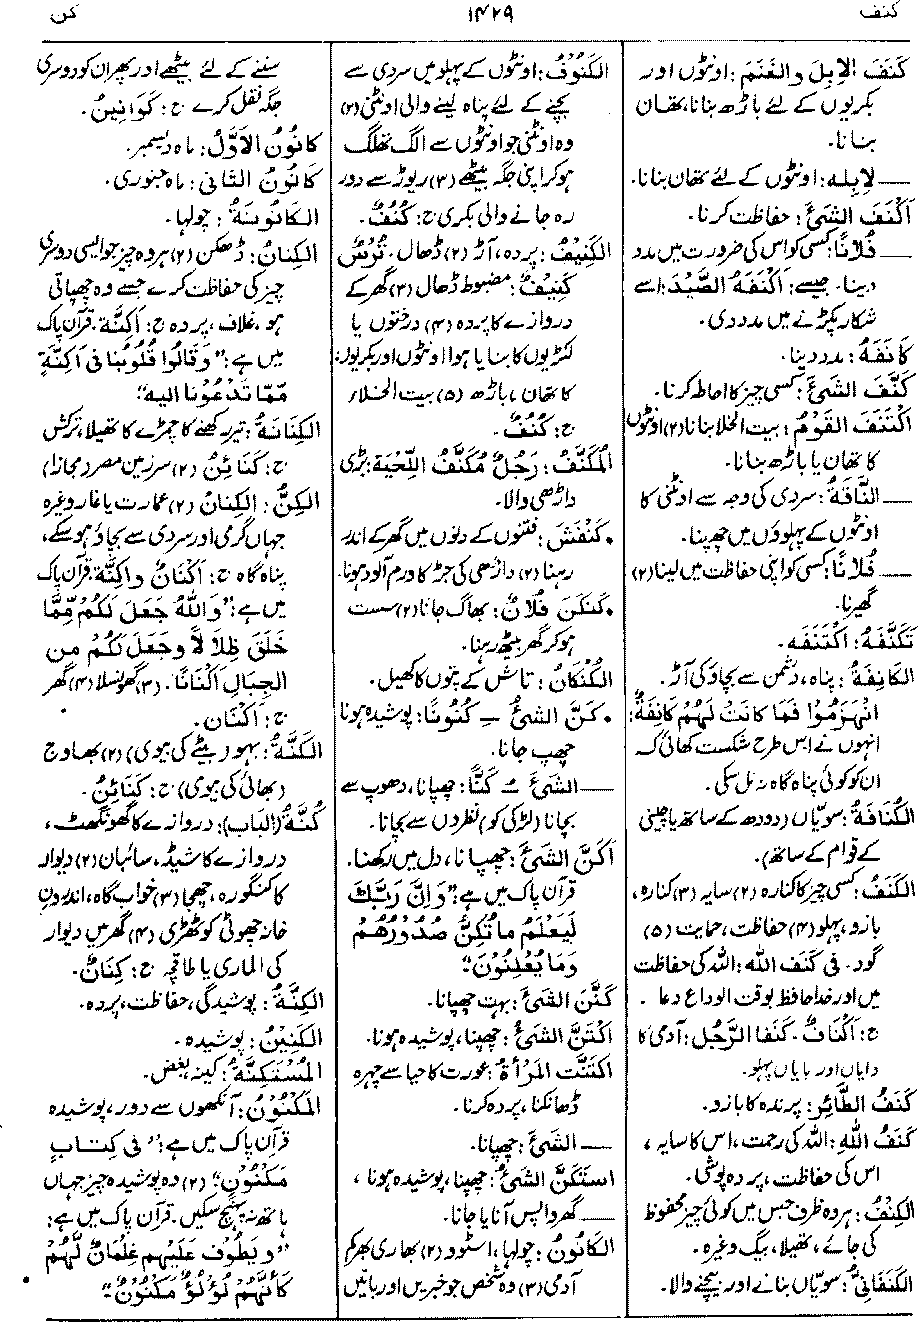 كنف
۱۴۲۹
كن
كَنَفَ الإبِلَ والغَنَمَ : اونٹوں اور
بکریوں کے لئے باڑھ بنانا، تھان
بنانا۔
— لِإبِلِه : اونٹوں کے لئے تھان بنانا۔
أَكْنَفَ الشَّيْءَ : حفاظت کرنا۔
— فُلَانًا : کسی کو اس کی ضرورت میں مدد
دینا۔ جیسے : أَكْنَفَهُ الصَّيْدَ : اسے
شکار پکڑنے میں مدد دی۔
كَانَفَهُ : مدد دینا۔
كَنَّفَ الشَّيْءَ : کسی چیز کا احاطہ کرنا۔
اكْتَنَفَ القَوْمُ : بیت الخلا بنانا (۲) اونٹوں
کا تھان یا باڑھ بنانا۔
— النَّاقَةُ : سردی کی وجہ سے اونٹنی کا
اونٹوں کے پہلوؤں میں چھپنا۔
— فُلَانًا : کسی کو اپنی حفاظت میں لینا (۲)
گھیرنا۔
تَكَنَّفَهُ : اكْتَنَفَه۔
الكَانِفَةُ : پناہ، دشمن سے بچاؤ کی آڑ۔
انْهَزَمُوا فَمَا كَانَتْ لَهُم كَانِفَةٌ :
انہوں نے اس طرح شکست کھائی کہ
ان کو کوئی پناہ گاہ نہ مل سکی۔
الكُنَافَةُ : سویّاں (دودھ کے ساتھ یا چینی
کے قوام کے ساتھ)۔
الكَنَفُ : کسی چیز کا کنارہ (۲) سایہ (۳) کنارہ،
بازو، پہلو (۴) حفاظت، حمایت (۵)
گود۔ فِي كَنَفِ الله : اللہ کی حفاظت
میں اور خدا حافظ بوقت الوداع دعا۔
ج : أكْنَافٌ۔ كَنَفَا الرَّجُل : آدمی کا
دایاں اور بایاں پہلو۔
كَنَفُ الطَّائِر : پرندہ کا بازو۔
كَنَفُ اللهِ : اللہ کی رحمت، اس کا سایہ،
اس کی حفاظت، پردہ پوشی۔
الكِنْفُ : ہر وہ ظرف جس میں کوئی چیز محفوظ
کی جائے، تھیلا، بیگ وغیرہ۔
الكَنَفَانِيُّ : سویّاں بنانے اور بیچنے والا۔
الكَنُوفُ : اونٹوں کے پہلو میں سردی سے
بچنے کے لئے پناہ لینے والی اونٹنی (۲)
وہ اونٹنی جو اونٹوں سے الگ تھلگ
ہو کر اپنی جگہ بیٹھے (۳) ریوڑ سے دور
رہ جانے والی بکری ج : كُنُفٌ۔
الكَنِيفُ : پردہ، آڑ (۲) ڈھال۔ تُرْسٌ
كَنِيفٌ : مضبوط ڈھال (۳) گھر کے
دروازے کا پردہ (۴) درختوں یا
لکڑیوں کا بنایا ہوا اونٹوں اور بکریوں
کا تھان، باڑھ (۵) بیت الخلاء
ج : كُنُفٌ۔
المُكَنَّفُ : رَجُلٌ مُكَنَّفُ اللِّحْيَة : بڑی
داڑھی والا۔
• كَنْفَشَ : فتنوں کے دنوں میں گھر کے اندر
رہنا (۲) داڑھی کی جڑ کا ورم آلود ہونا۔
• كَنْكَنَ فُلَانٌ : بھاگ جانا (۲) سست
ہو کر گھر بیٹھ رہنا۔
الكُنْكَانُ : تاش کے پتوں کا کھیل۔
• كَنَّ الشَّيْءُ ـِ كُنُونًا : پوشیدہ ہونا
چھپ جانا۔
— الشَّيْءَ ـُ كَنًّا : چھپانا، دھوپ سے
بچانا (لڑکی کو) نظروں سے بچانا۔
أَكَنَّ الشَّيْءَ : چھپانا، دل میں رکھنا۔
قرآن پاک میں ہے : "وَإنَّ رَبَّكَ
لَيَعْلَمُ مَا تُكِنُّ صُدُورُهُمْ
وَمَا يُعْلِنُوْنَ"
كَنَّنَ الشَّيْءَ : بہت چھپانا۔
اكْتَنَّ الشَّيْءُ : چھپنا، پوشیدہ ہونا۔
اكْتَنَّتِ المَرْأَةُ : عورت کا حیا سے چہرہ
ڈھانکنا، پردہ کرنا۔
— الشَّيْءَ : چھپانا۔
اسْتَكَنَّ الشَّيْءُ : چھپنا، پوشیدہ ہونا،
— گھر واپس آنا یا جانا۔
الكَانُونُ : چولہا، اسٹوو (۲) بھاری بھرکم
آدمی (۳) وہ شخص جو خبریں اور باتیں
سننے کے لئے بیٹھے اور پھر ان کو دوسری
جگہ نقل کرے ج : كَوَانِينُ۔
كَانُونُ الأوَّلُ : ماہ دسمبر۔
كَانُونُ الثَّانِي : ماہ جنوری۔
الكَانُونَةُ : چولہا۔
الكِنَانُ : ڈھکن (۲) ہر وہ چیز جو ایسی دوسری
چیز کی حفاظت کرے جسے وہ چھپاتی
ہو۔ غلاف، پردہ ج : أكِنَّة۔ قرآن پاک
میں ہے : "وَقَالُوا قُلُوبُنَا فِي أكِنَّةٍ
مِّمَّا تَدْعُوْنَا اليه"
الكِنَانَةُ : تیر رکھنے کا چمڑے کا تھیلا، ترکش
ج : كَنَائِنُ (۲) سرزمین مصر (مجازا)
الكِنُّ : الكِنَانُ (۲) عمارت یا غار وغیرہ
جہاں گرمی اور سردی سے بچاؤ ہو سکے،
پناہ گاہ ج : أكْنَانٌ واكِنَّة۔ قرآن پاک
میں ہے : "وَاللهُ جَعَلَ لَكُمْ مِّمَّا
خَلَقَ ظِلَالًا وجَعَلَ لَكُمْ مِن
الجِبَالِ أَكْنَانًا۔ (۳) گھونسلا (۴) گھر
ج : أَكْنَان۔
الكَنَّةُ : بہو (بیٹے کی بیوی) (۲) بھاوج
(بھائی کی بیوی) ج : كَنَائِنُ۔
كُنَّةُ (الباب) : دروازے کا گھونگھٹ،
دروازے کا شیڈ، سائبان (۲) دیوار
کا کنگورہ، چھجا (۳) خواب گاہ، اندرون
خانہ چھوٹی کوٹھڑی (۴) گھر میں دیوار
کی الماری یا طاقچہ ج : كِنَانٌ۔
الكِنَّةُ : پوشیدگی، حفاظت، پردہ۔
الكَنِيْنُ : پوشیدہ۔
المُسْتَكِنَّةُ : کینہ، بغض۔
المَكْنُوْنُ : آنکھوں سے دور، پوشیدہ
قرآن پاک میں ہے : "فِي كِتَابٍ
مَكْنُوْنٍ" (۲) وہ پوشیدہ چیز جہاں
ہاتھ نہ پہنچ سکیں۔ قرآن پاک میں ہے :
"ويَطُوْفُ عَلَيْهِم غِلْمَانٌ لَّهُمْ
كَأَنَّهُمْ لُؤْلُؤٌ مَكْنُوْنٌ"